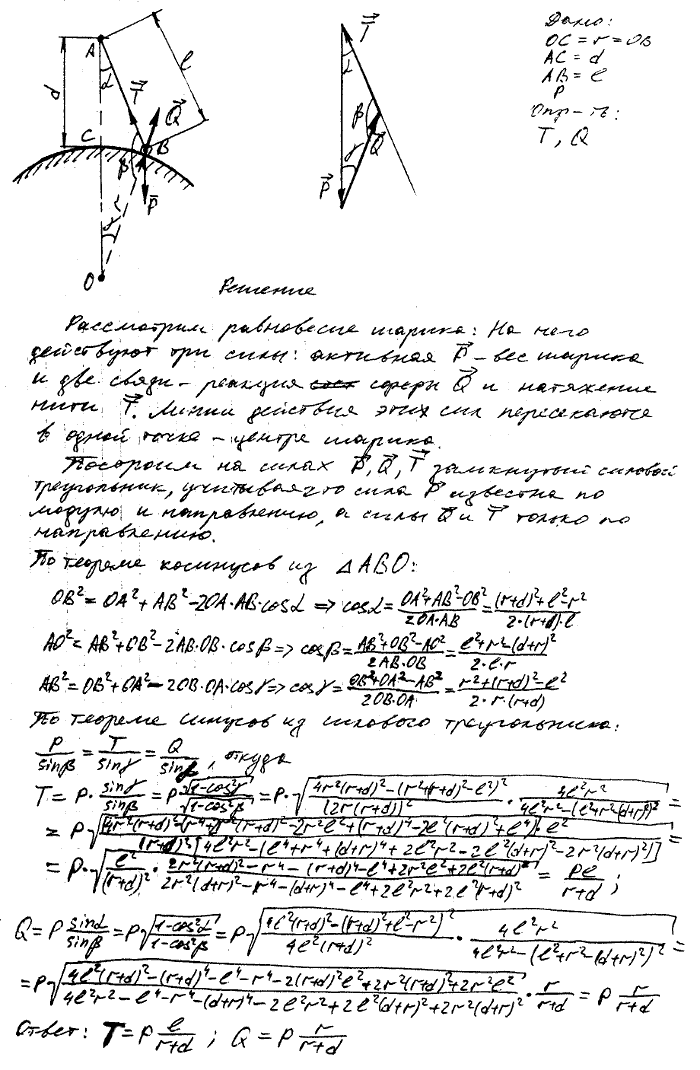 Дано:
OC = r = OB
AC = d
AB = l
P
Опр-ть:
T, Q
A
α
d
l
T⃗
Q⃗
C
B
β
P⃗
γ
r
O
T⃗
α
β
Q⃗
γ
P⃗
Решение
Рассмотрим равновесие шарика: На него
действуют три силы: активная P⃗ – вес шарика
и две связи – реакция сферы Q⃗ и натяжение
нити T⃗. Линии действия этих сил пересекаются
в одной точке – центре шарика.
Построим на силах P⃗, Q⃗, T⃗ замкнутый силовой
треугольник, учитывая что сила P⃗ известна по
модулю и направлению, а силы Q⃗ и T⃗ только по
направлению.
По теореме косинусов из △ABO:
OB² = OA² + AB² - 2OA·AB·cosα => cosα = (OA²+AB²-OB²)/(2OA·AB) = ((r+d)²+l²-r²)/(2·(r+d)·l)
AO² = AB² + OB² - 2AB·OB·cosβ => cosβ = (AB²+OB²-AO²)/(2AB·OB) = (l²+r²-(d+r)²)/(2·l·r)
AB² = OB² + OA² - 2OB·OA·cosγ => cosγ = (OB²+OA²-AB²)/(2OB·OA) = (r²+(r+d)²-l²)/(2·r·(r+d))
По теореме синусов из силового треугольника:
P/sinβ = T/sinγ = Q/sinβ, откуда
T = P·sinγ/sinβ = P√(1-cos²γ)/√(1-cos²β) = P·√((4r²(r+d)²-(r²+(r+d)²-l²)²)/(2r(r+d))² · 4l²r²/(4l²r²-(l²+r²-(d+r)²)²)) =
= P√([4r²(r+d)²-(r⁴+2r²(r+d)²-2r²l²+(r+d)⁴-2l²(r+d)²+l⁴)]·l²/((r+d)²[4l²r²-(l⁴+r⁴+(d+r)⁴+2l²r²-2l²(d+r)²-2r²(d+r)²)])) =
= P·√(l²/(r+d)² · (2r²(r+d)²-r⁴-(r+d)⁴-l⁴+2r²l²+2l²(r+d)²)/(2r²(d+r)²-r⁴-(d+r)⁴-l⁴+2l²r²+2l²(r+d)²)) = Pl/(r+d);
Q = P sinα/sinβ = P√((1-cos²α)/(1-cos²β)) = P√((4l²(r+d)²-((r+d)²+l²-r²)²)/(4l²(r+d)²) · 4l²r²/(4l²r²-(l²+r²-(d+r)²)²)) =
= P√((4l²(r+d)²-(r+d)⁴-l⁴-r⁴-2(r+d)²l²+2r²(r+d)²+2r²l²)/(4l²r²-l⁴-r⁴-(d+r)⁴-2l²r²+2l²(d+r)²+2r²(d+r)²)) · r/(r+d) = P r/(r+d)
Ответ: T = P l/(r+d); Q = P r/(r+d)